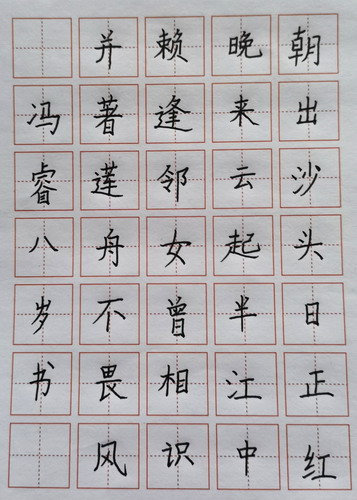 朝出沙头日正红
晚来云起半江中
赖逢邻女曾相识
并著莲舟不畏风
冯睿八岁书